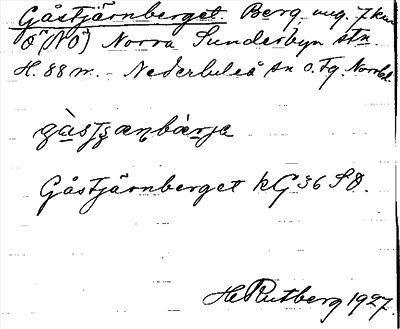 Gåstjärnberget. Berg. ung. 7 km
Ö (NÖ) Norra Sunderbyn stn
H. 88 m. - Nederluleå sn o. Tg. Norrbd.
Gåstjärnberget kG 36 SÖ.
H Rutberg 1927.